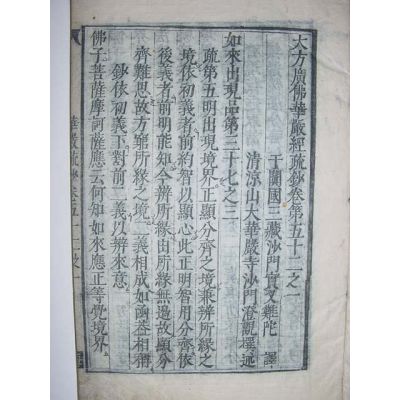 大方廣佛華嚴經疏鈔卷第五十二之一
于闐國三藏沙門實叉難陀 譯
清涼山大華嚴寺沙門澄觀撰述
如來出現品第三十七之三
疏第五明出現境界正顯分齊之境兼辨所緣之
境依初義者前約智以顯心此正明智用分齊依
後義者前明能知今辨所緣由所緣無盡故顯分
齊難思故方窮所緣之境二義相成如函蓋相稱
鈔依初義下對前二義以辨來意
佛子菩薩摩訶薩應云何知如來應正等覺境界
華嚴疏鈔卷五十二之一